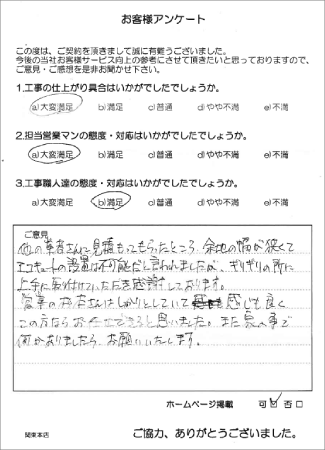 お客様アンケート
この度は、ご契約を頂きまして誠に有難うございました。
今後の当社お客様サービス向上の参考にさせて頂きたいと思っておりますので、
ご意見・ご感想を是非お聞かせ下さい。
1.工事の仕上がり具合はいかがでしたでしょうか。
a)大変満足 b)満足 c)普通 d)やや不満 e)不満
2.担当営業マンの態度・対応はいかがでしたでしょうか。
a)大変満足 b)満足 c)普通 d)やや不満 e)不満
3.工事職人達の態度・対応はいかがでしたでしょうか。
a)大変満足 b)満足 c)普通 d)やや不満 e)不満
ご意見
他の業者さんに見積もってもらったところ、余地の幅が狭くて
エコキュートの設置は不可能だと言われましたが、ギリギリの所に
上手に取付けていただき感謝しております。
しっかりとしていて 感じも良く
この方なら できると思いました。また家の事で
何かありましたら、お願いいたします。
ホームページ掲載 可☑ 否□
関東本店
ご協力、ありがとうございました。